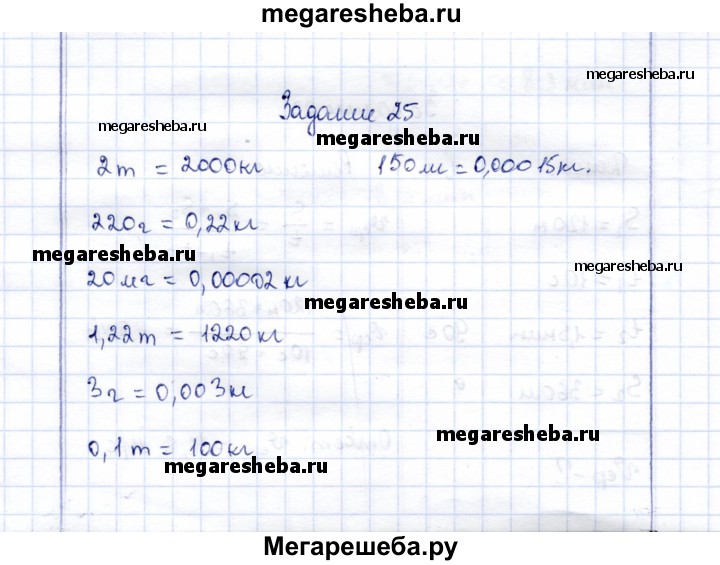 megaresheba.ru
megaresheba.ru
Задание 25
megaresheba.ru
megaresheba.ru
2т = 2000кг 150мг = 0,00015кг.
220г = 0,22кг
megaresheba.ru
megaresheba.ru
20мг = 0,00002кг
megaresheba.ru
1,22т = 1220кг
3г = 0,003кг
megaresheba.ru
0,1т = 100кг
megaresheba.ru
megaresheba.ru
Мегарешеба.ру